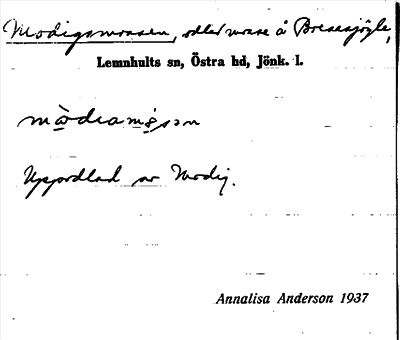 Modigsmossen, odlad mosse å Bresesjögle,
Lemnhults sn, Östra hd, Jönk. l.
mòdiamòsən
Uppodlad av Modig.
Annalisa Anderson 1937